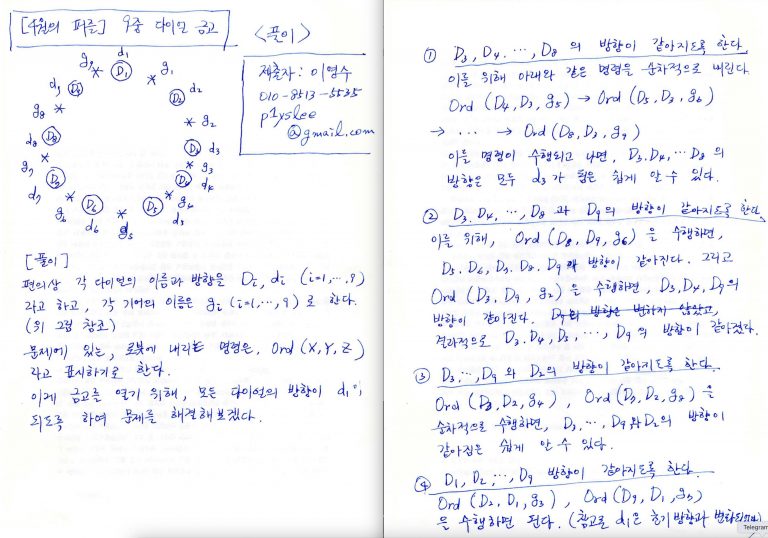 [4월의 퍼즐] 9중 다이얼 금고
<풀이>
제출자 : 이영수
010-8513-5535
p1yslee
@gmail.com
d₁
g₉ D₁ g₁
d₉ D₉ D₂ d₂
g₈ g₂
d₈ D₈ D₃ d₃
g₇ g₃
d₇ D₇ D₄ d₄
g₆ D₆ D₅ g₄
d₆ g₅ d₅
[풀이]
편의상 각 다이얼의 이름과 방향을 Dᵢ, dᵢ (i=1,…,9)
라고 하고, 각 기어의 이름은 gᵢ (i=1,…,9) 로 한다.
(위 그림 참조)
문제에 있는, 로봇에 내리는 명령은, Ord(X,Y,Z)
라고 표시하기로 한다.
이제 금고를 열기 위해, 모든 다이얼의 방향이 d₁이
되도록 하여 문제를 해결해보겠다.
① D₃, D₄, …, D₈ 의 방향이 같아지도록 한다.
이를 위해 아래와 같은 명령을 순차적으로 내린다.
Ord (D₄, D₃, g₅) → Ord (D₅, D₃, g₆)
→ … → Ord (D₈, D₃, g₉)
이들 명령이 수행되고 나면, D₃, D₄, … D₈ 의
방향은 모두 d₃ 가 됨은 쉽게 알 수 있다.
② D₃, D₄, …, D₈ 과 D₉ 의 방향이 같아지도록 한다.
이를 위해, Ord (D₈, D₉, g₆) 을 수행하면,
D₅, D₆, D₇, D₈, D₉ 의 방향이 같아진다. 그리고
Ord (D₃, D₉, g₂) 을 수행하면, D₃, D₄, D₉ 의
방향이 같아진다. D₉의 방향은 변하지 않았고,
결과적으로 D₃, D₄, D₅, …, D₉ 의 방향이 같아졌다.
③ D₃, …, D₉ 와 D₂의 방향이 같아지도록 한다.
Ord (D₃, D₂, g₄), Ord (D₉, D₂, g₄) 을
순차적으로 수행하면, D₃, …, D₉ 와 D₂의 방향이
같아짐은 쉽게 알 수 있다.
④ D₁, D₂, …, D₉ 방향이 같아지도록 한다.
Ord (D₂, D₁, g₃), Ord (D₉, D₁, g₃)
을 수행하면 된다. (참고로 d₁은 초기 방향과
Telegram